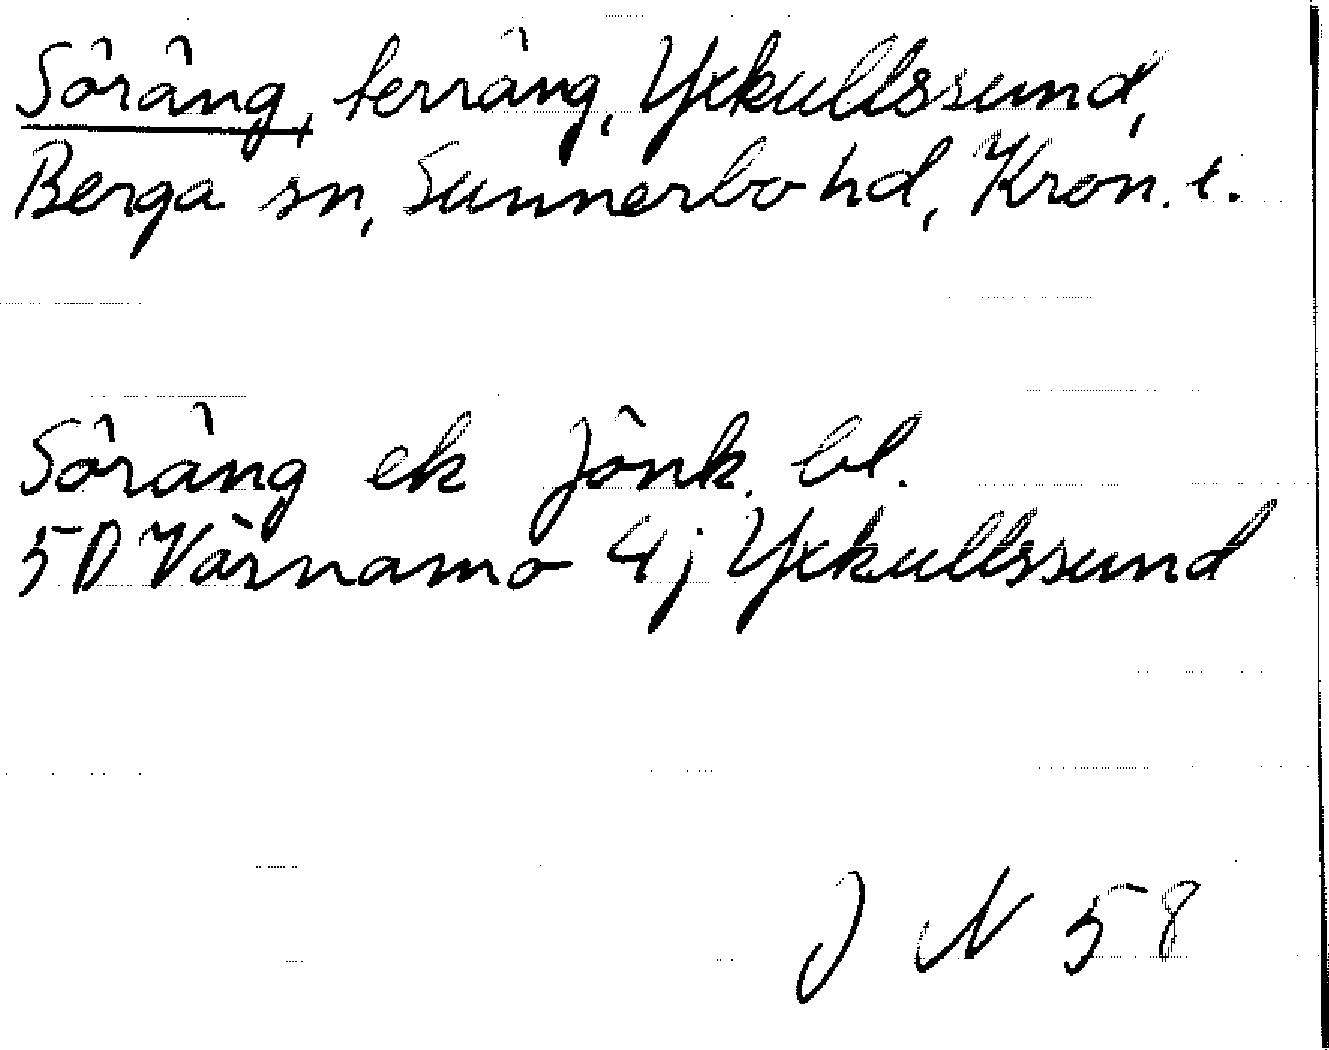 Söräng, terräng, Yxkullssund,
Berga sn, Sunnerbo hd, Kron. l.
Söräng ek Jönk. bl.
5D Värnamo 4j Yxkullssund
J N 58